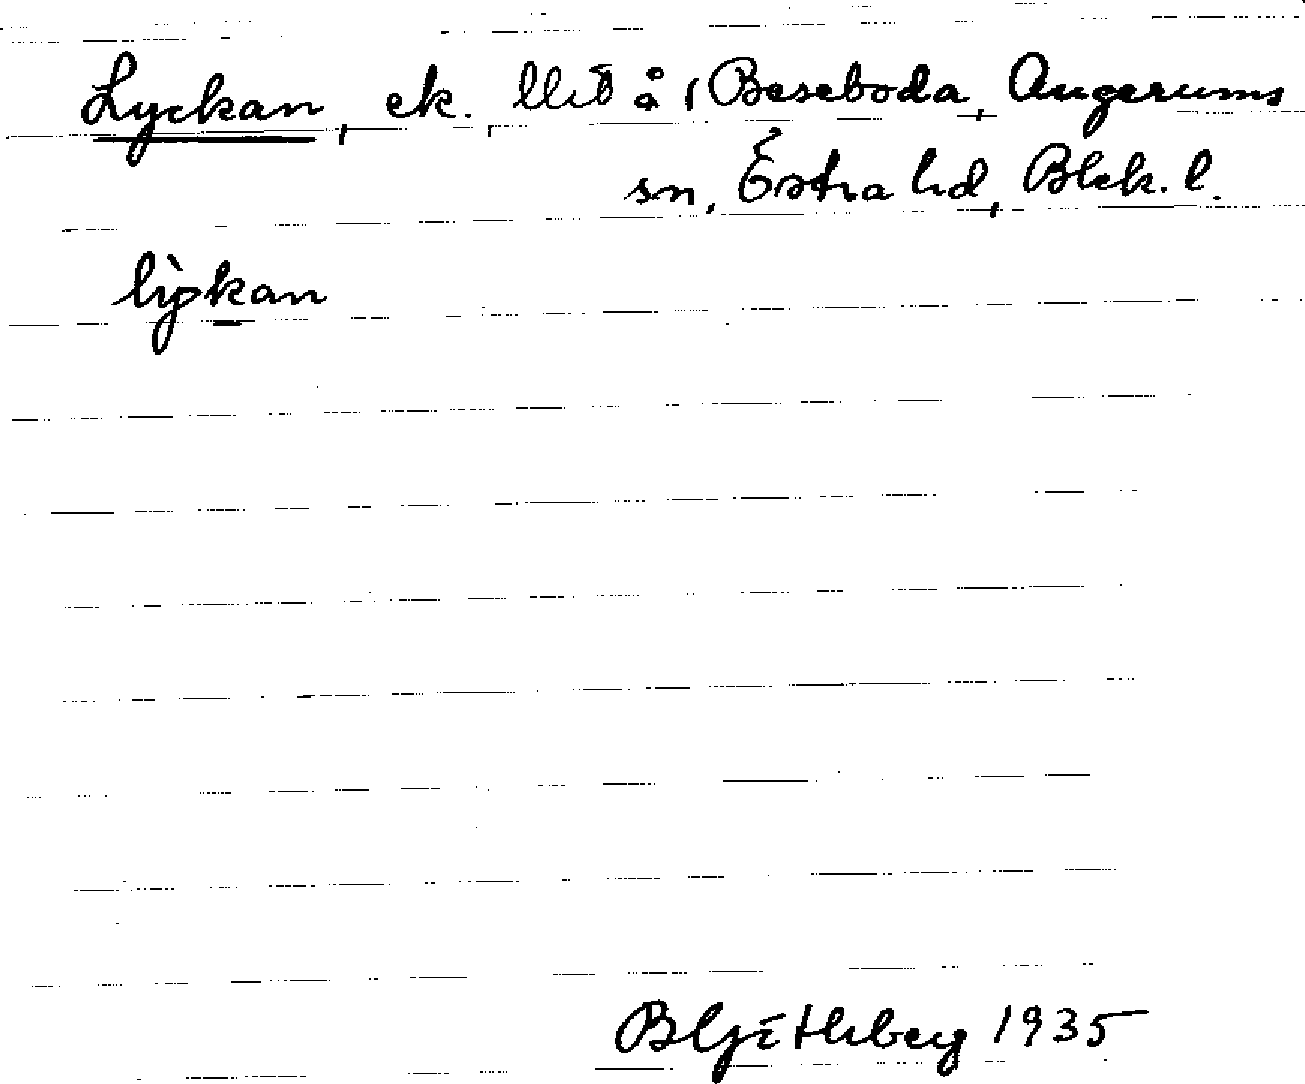 Lyckan, ek. 1/16 å, Beseboda, Augerums
sn, Östra hd, Blek. l.
lỳkan
B Ljåthberg 1935